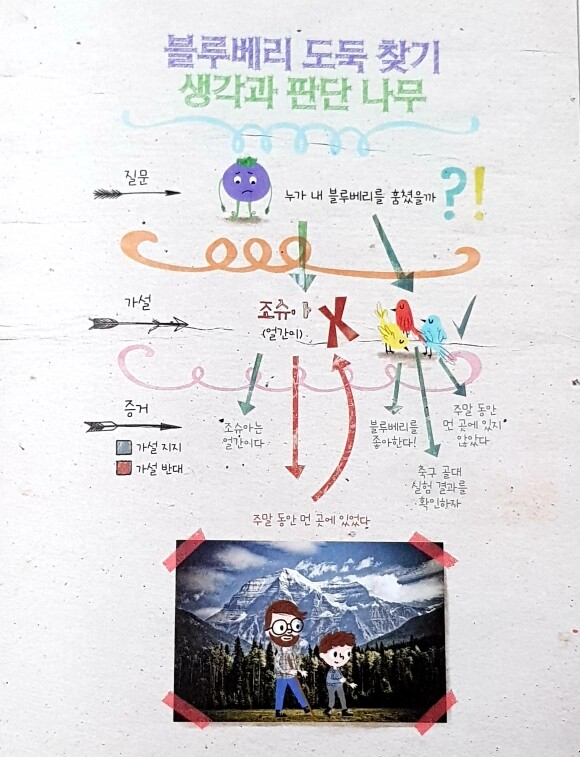 블루베리 도둑 찾기
생각과 판단 나무
질문
누가 내 블루베리를 훔쳤을까 ?!
가설
조슈아
(얼간이)
X
증거
가설 지지
가설 반대
조슈아는
얼간이다
블루베리를
좋아한다!
주말 동안
먼 곳에 있지
않았다
축구 골대
실험 결과를
확인하자
주말 동안 먼 곳에 있었다